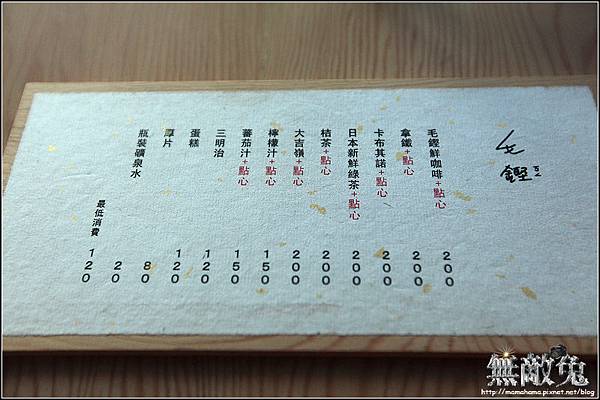 毛鏗
毛鏗鮮咖啡+點心 200
拿鐵+點心 200
卡布其諾+點心 200
日本新鮮綠茶+點心 200
桔茶+點心 200
大吉嶺+點心 200
檸檬汁+點心 150
蕃茄汁+點心 150
三明治 120
蛋糕 120
厚片 80
瓶裝礦泉水 20
最低消費 120
無敵兔
http://mamahama.pixnet.net/blog